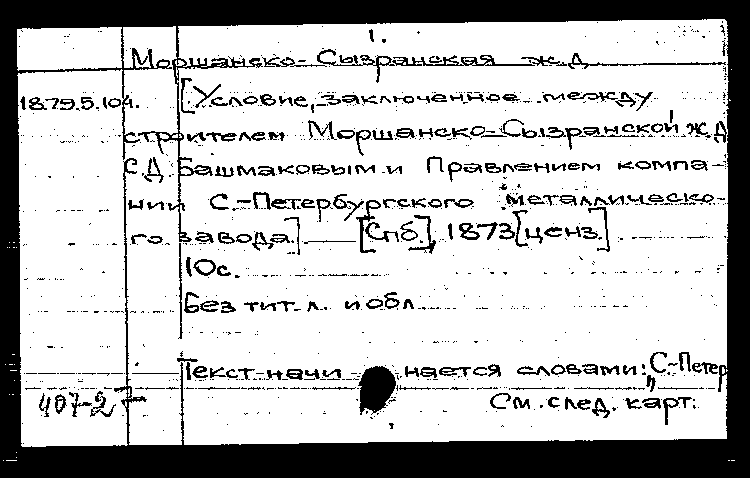 1.
Моршанско-Сызранская ж.д.
18.79.5.104. [Условие, заключенное между
строителем Моршанско-Сызранской ж.д
С.Д. Башмаковым и Правлением компа-
нии С.-Петербургского металлическо-
го завода.] [Спб.], 1873 [ценз.]
10с.
Без тит. л. и обл.
Текст начинается словами: „С.-Петер
407-27 См. след. карт.